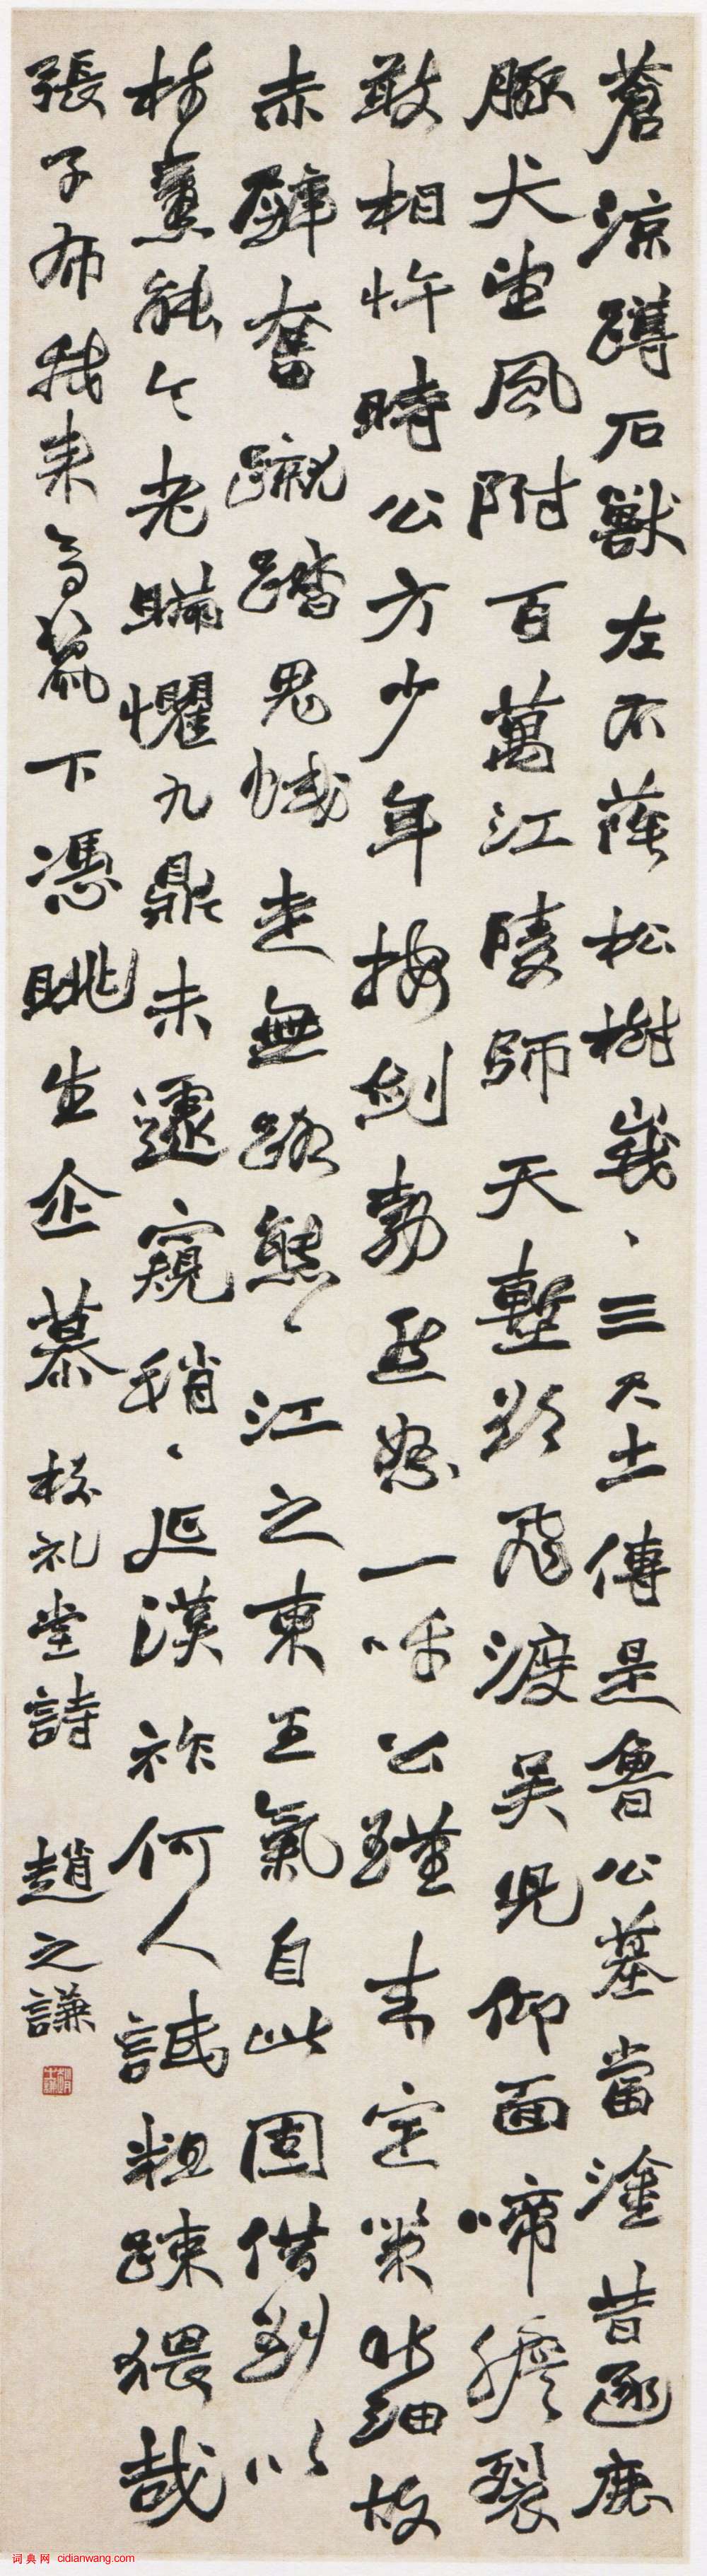 蒼涼蹲石獸左右蔭松樹峩、三尺土傳是魯公墓當塗昔逐鹿
豚犬望風附百萬江陵師天塹欲飛渡吳兒仰面啼膽裂
敢相忤時公方少年按劍勃然怒一呼公瑾來定策非細故
赤壁奮蹴踏鬼蜮走無路熊、江之東王氣自此固借荆以
樹藁能令老瞞懼九鼎未遽窺稍、延漢祚何人誠粗疎猥哉
張子布我來高冢下憑眺生企慕 校礼堂詩 趙之謙
词典网 cidianwang.com